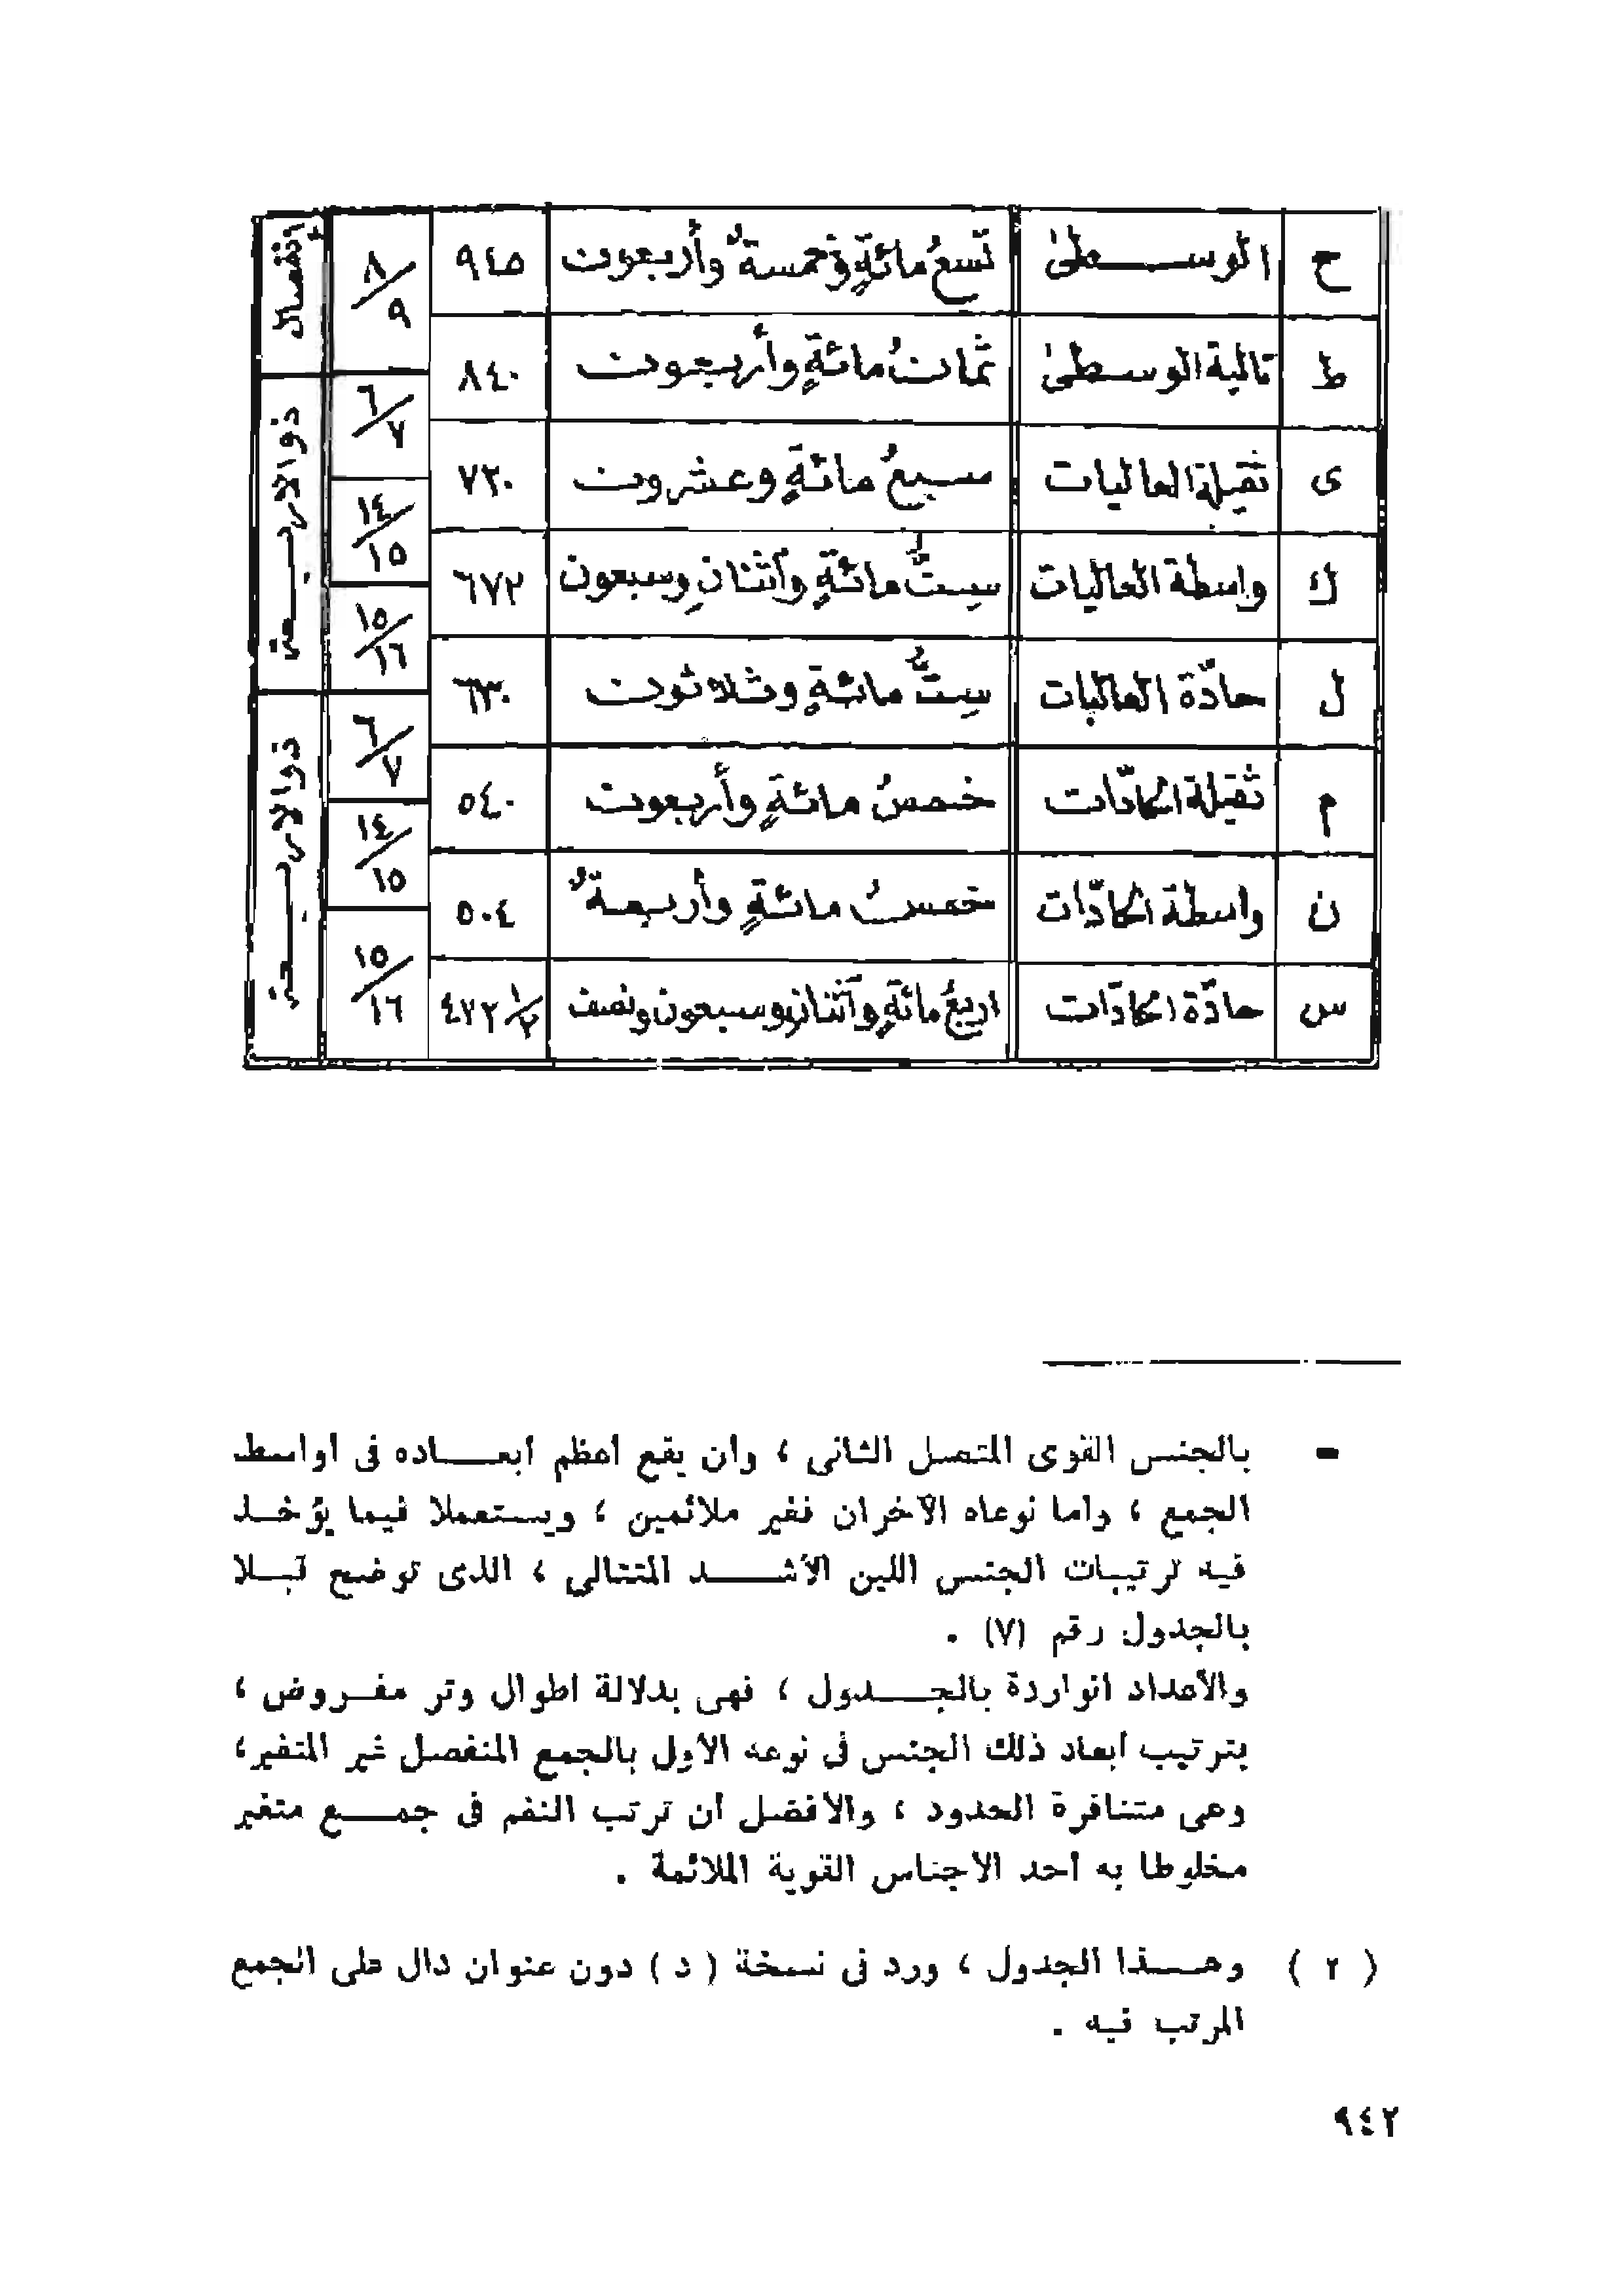 ح الوسطىٰ تسعُ مائةٍ وخمسةٌ وأربعون ٩٤٥ ٨/٩ إنفصال
ط تالية الوسطىٰ ثمانُ مائةٍ وأربعون ٨٤٠ ٦/٧ ذو الأربعة
ى ثقيلة العاليات سبعُ مائةٍ وعشرون ٧٢٠ ١٤/١٥
ك واسطة العاليات ستُّ مائةٍ وآثنانِ وسبعون ٦٧٢ ١٥/١٦
ل حادّة العاليات ستُّ مائةٍ وثلاثون ٦٣٠ ٦/٧ ذو الأربعة
م ثقيلة الحادّات خمسُ مائةٍ وأربعون ٥٤٠ ١٤/١٥
ن واسطة الحادّات خمسُ مائةٍ وأربعةٌ ٥٠٤ ١٥/١٦
س حادّة الحادّات اربعُ مائةٍ وآثنانِ وسبعون ونصف ٤٧٢ ١/٢
- بالجنس القوى المتصل الثانى ، وأن يقع أعظم أبعـــاده فى أواسط
الجمع ، وأما نوعاه الآخران فغير ملائمين ، ويستعملا فيما يؤخـذ
فيه ترتيبات الجنس اللين الأشــد المتتالى ، الذى توضح قبـلا
بالجدول رقم (٧) .
والأعداد الواردة بالجــدول ، فهى بدلالة أطوال وتر مفـروض ،
بترتيب أبعاد ذلك الجنس فى نوعه الأول بالجمع المنفصل غير المتغير،
وهى متنافرة الحدود ، والأفضل أن ترتب النغم فى جمــع متغير
مخلوطا به أحد الأجناس القوية الملائمة .
( ٢ ) وهــذا الجدول ، ورد فى نسخة ( د ) دون عنوان دال على الجمع
المرتب فيه .
٩٤٢